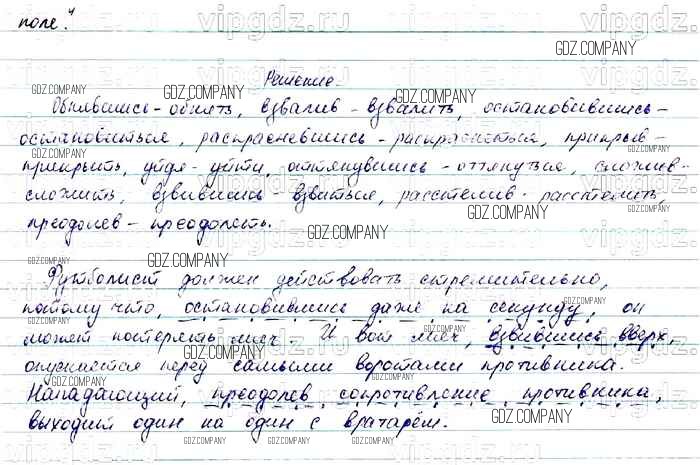 поле".
Решение.
Обнявшись - обнять, взвалив - взвалить, остановившись -
остановиться, раскрасневшись - раскраснеться, прикрыв -
прикрыть, уйдя - уйти, оттянувшись - оттянуться, сложив -
сложить, взвившись - взвиться, расстелив - расстелить,
преодолев - преодолеть.
Футболист должен действовать стремительно,
потому что, остановившись даже на секунду, он
может потерять мяч. И вот мяч, взвившись вверх,
опускается перед самыми воротами противника.
Нападающий, преодолев сопротивление противника,
выходит один на один с вратарём.